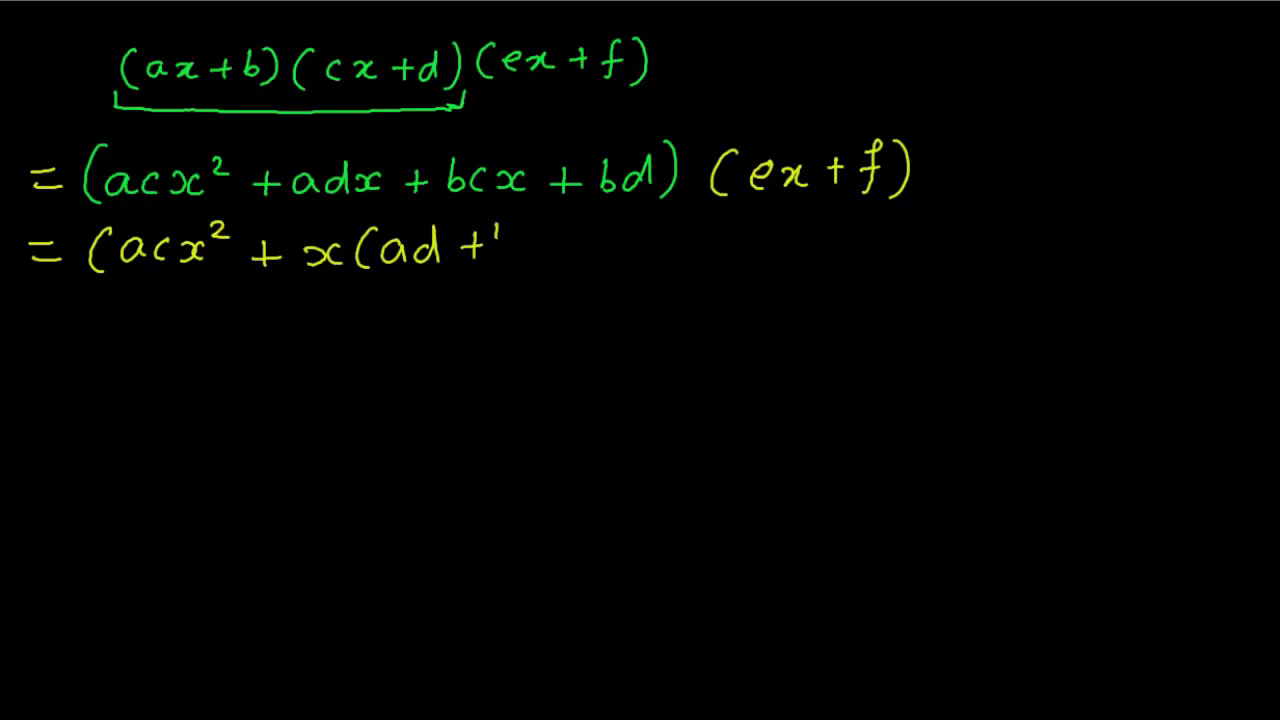 (ax+b)(cx+d)(ex+f)
= (acx² + adx + bcx + bd) (ex+f)
= (acx² + x(ad +